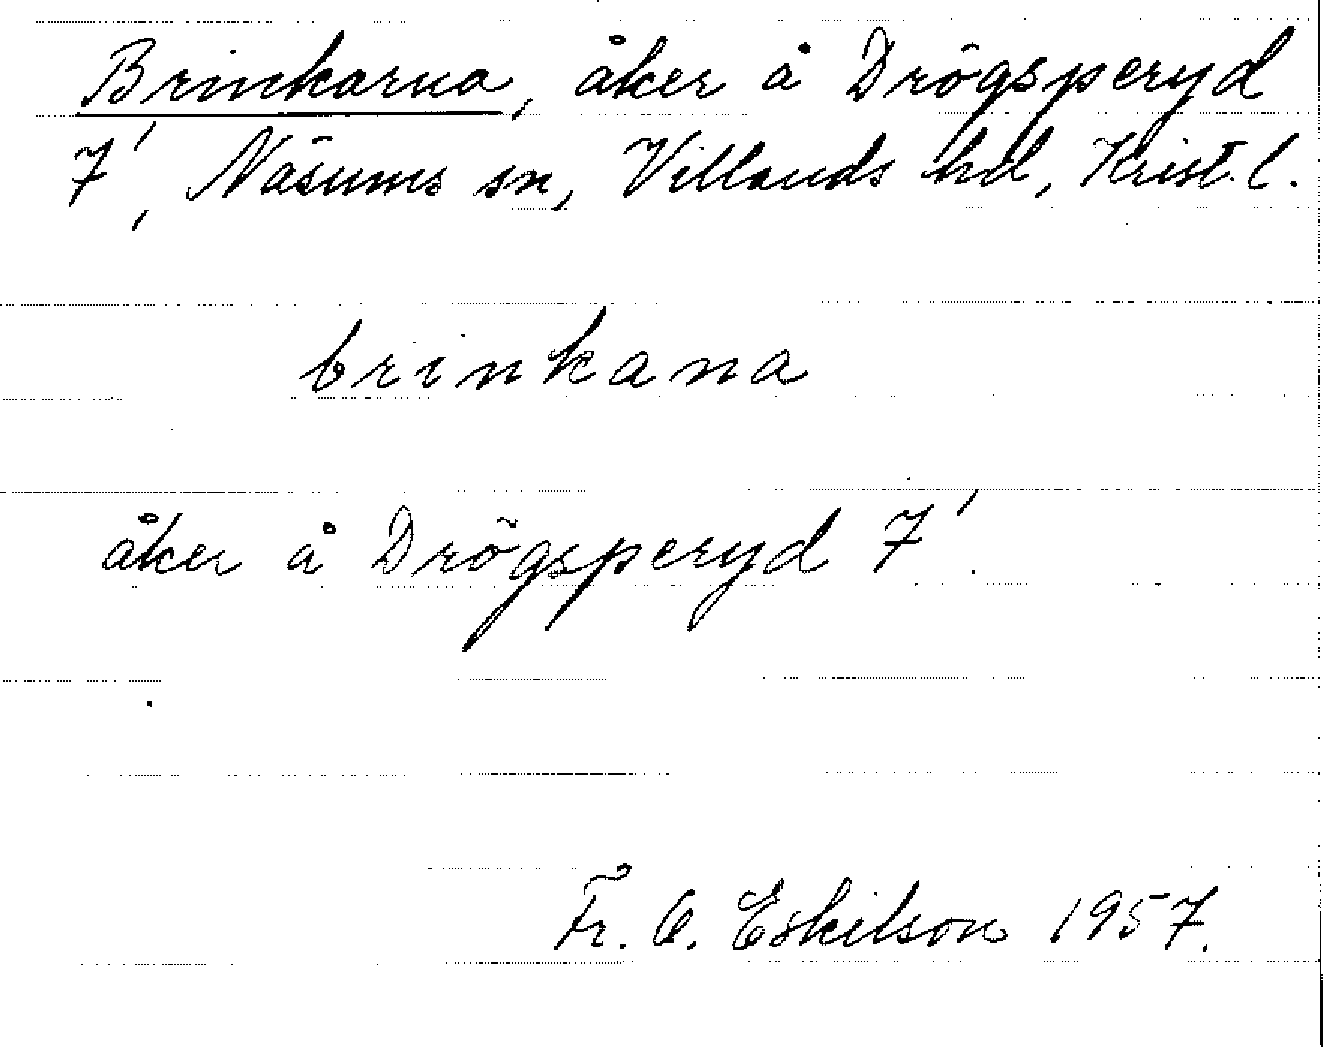 Brinkarna, åker å Drögsperyd
7', Näsums sn, Villands hd, Krist. l.
brinkana
åker å Drögsperyd 7'.
Fr. O. Eskilson 1957.